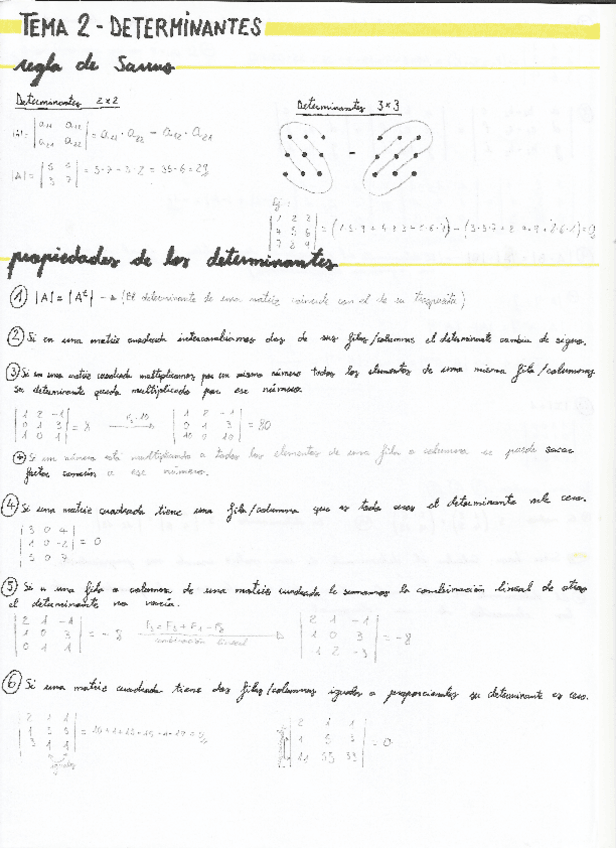 TEMA 2 - DETERMINANTES
regla de Sarrus
Determinantes 2x2
Determinantes 3x3
propiedades de los determinantes
① |A| = |Aᵗ| → (El determinante de una matriz coincide con el de su traspuesta)
② Si en una matriz cuadrada intercambiamos dos de sus filas/columnas el determinante cambia de signo.
③ Si en una matriz cuadrada multiplicamos por un mismo número todos los elementos de una misma fila/columna
su determinante queda multiplicado por ese número.
|1 2 -1|
|0 1 3| = 8
|1 0 1|
|1 2 -1|
|0 1 3| = 80
|10 0 10|
Si un número está multiplicando a todos los elementos de una fila o columna se puede sacar
factor común a ese número.
④ Si una matriz cuadrada tiene una fila/columna que es todo ceros el determinante vale cero.
|3 0 4|
|1 0 -2| = 0
|5 0 7|
⑤ Si a una fila o columna de una matriz cuadrada le sumamos la combinación lineal de otras
el determinante no varía.
|2 1 -1|
|1 0 3| = -8
|0 1 1|
combinación lineal
|2 1 -1|
|1 0 3| = -8
|1 2 -3|
⑥ Si una matriz cuadrada tiene dos filas/columnas iguales o proporcionales su determinante es cero.
|2 1 1|
|1 5 3|
|11 55 33| = 0
iguales